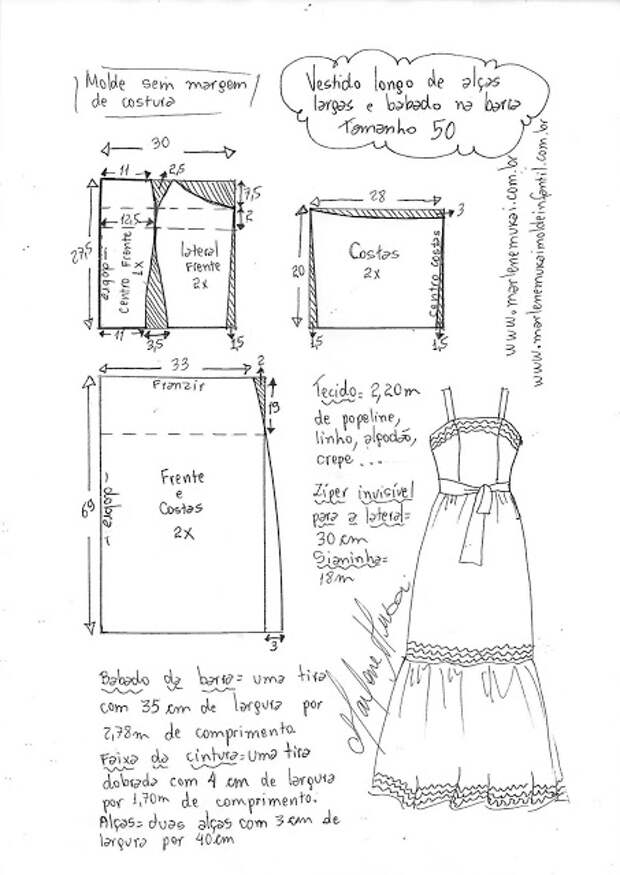 Molde sem margem
de costura
Vestido longo de alças
largas e babado na barra
Tamanho 50
www.marlenemukai.com.br
www.marlenemukaimoldeinfantil.com.br
30
11
2,5
7,5
2
12,5
27,5
dobra
Centro Frente
1x
lateral
Frente
2x
11
3,5
1,5
28
3
20
Costas
2x
centro costas
1,5
1,5
33
2
Franzir
19
69
dobra
Frente
e
Costas
2x
3
Tecido= 2,20m
de popeline,
linho, algodão,
crepe...
Zíper invisível
para a lateral=
30 cm
Sianinha=
18m
Marlene Mukai
Babado da barra= uma tira
com 35 cm de largura por
2,78m de comprimento.
Faixa da cintura= uma tira
dobrada com 4 cm de largura
por 1,70m de comprimento.
Alças= duas alças com 3 cm de
largura por 40cm